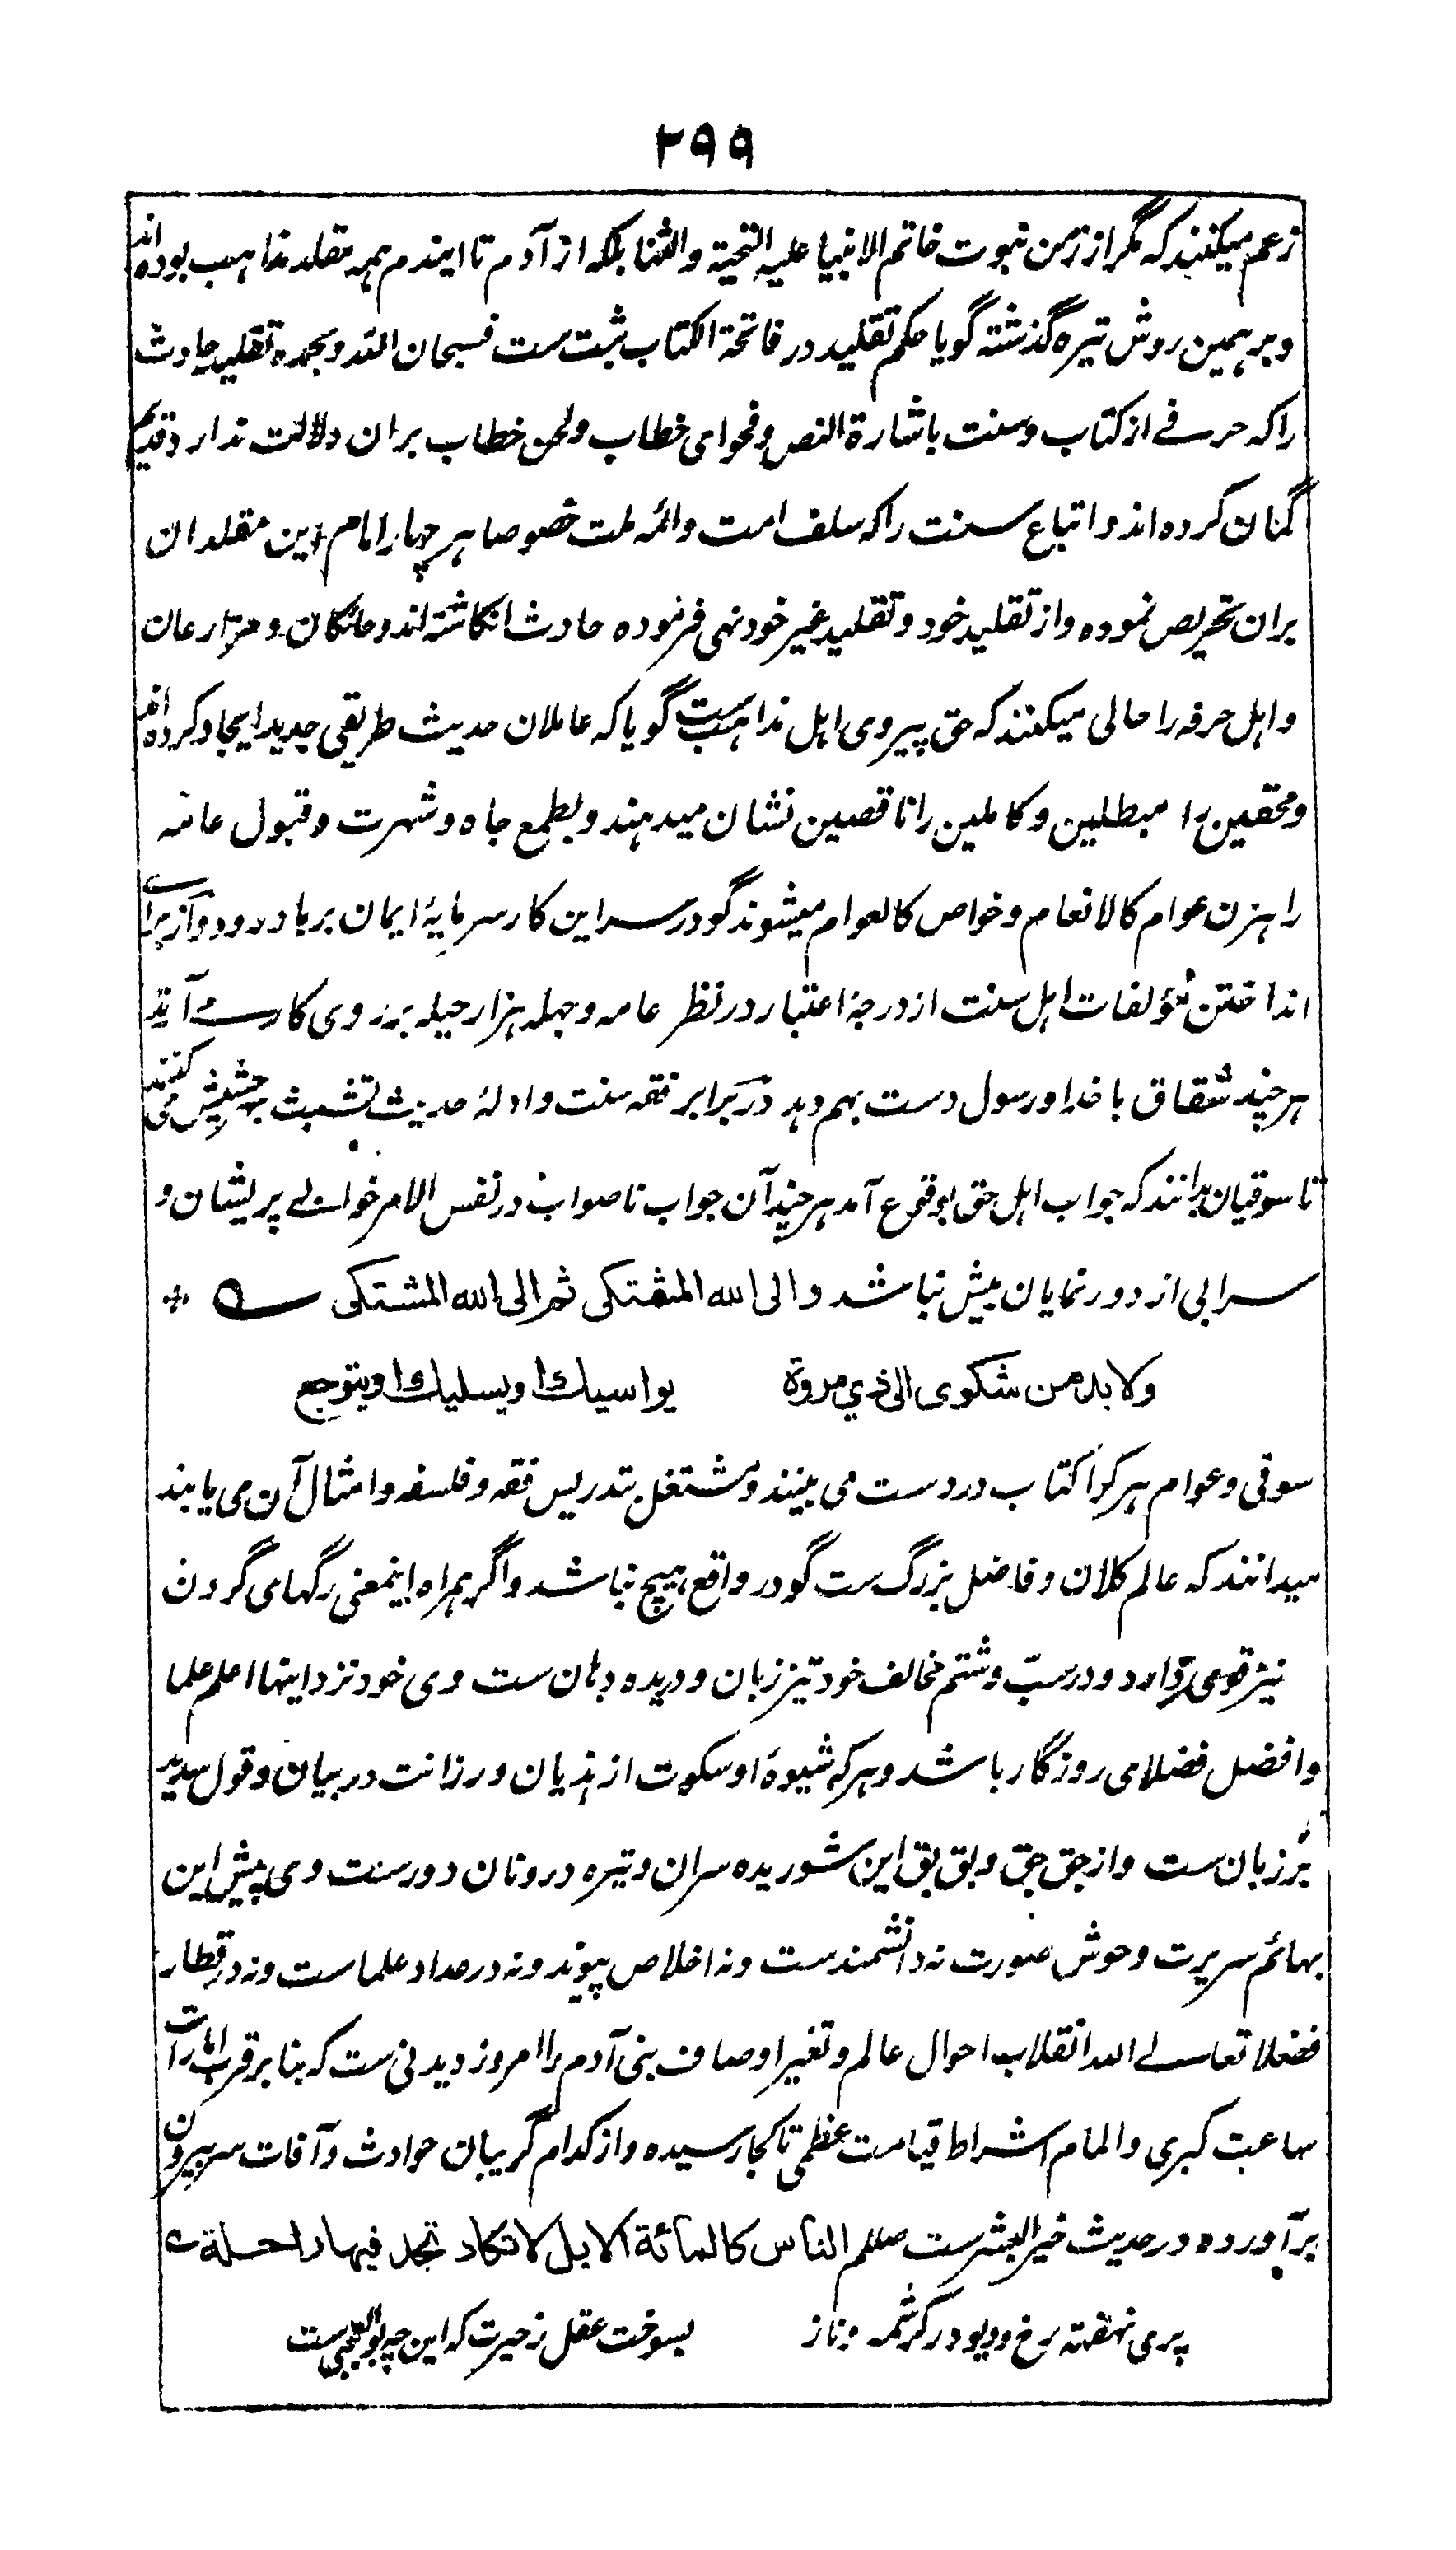 ۲۹۹
زعم میکنند که مگر از زمن نبوت خاتم الانبیا علیه التحیة والثنا بلکه از آدم تا ایندم همه مقلد مذاهب بوده اند
و بر همین روش تیره گذشته گویا حکم تقلید در فاتحة الکتاب ثبت ست فسبحان الله و بحمده تقلید حادث
را که حرفے از کتاب و سنت باشارة النص و فحوای خطاب و لحن خطاب بران دلالت ندارد قدیم
گمان کرده اند و اتباع سنت را که سلف امت و ائمه ملت خصوصا هر چهار امام این مقلدان
بران تحریص نموده و از تقلید خود و تقلید غیر خود نهی فرموده حادث انگاشته اند و حائکان و مزارعان
و اهل حرفه را حالی میکنند که حق پیروی اهل مذاهب ست گویا که عاملان حدیث طریقی جدید ایجاد کرده اند
و محقین را مبطلین و کاملین را ناقصین نشان میدهند و بطمع جاه و شهرت و قبول عامه
راهزن عوام کالانعام و خواص کالعوام میشوند گو در سر این کار سرمایۂ ایمان برباد رود و از براے
انداختن مؤلفات اهل سنت از درجۂ اعتبار در نظر عامه و جهله هزار حیله بر روی کار مے آرند
هر چند شقاق با خدا و رسول دست بهم دهد در برابر فقه سنت و ادلۂ حدیث تشبث بهر حشیش می کنند
تا سوقیان بدانند که جواب اهل حق بوقوع آمد هر چند آن جواب ناصواب در نفس الامر خوابے پریشان و
سرابی از دور نمایان بیش نباشد والی الله المشتکی ثم الی الله المشتکی ے
ولا بد من شکوی الی ذی مروة یواسیک او یسلیک او یتوجع
سوقی و عوام هر کرا کتاب در دست می بینند و مشتغل بتدریس فقه و فلسفه و امثال آن می یابند
میدانند که عالم کلان و فاضل بزرگ ست گو در واقع هیچ نباشد و اگر همراه اینمعنی رگهای گردن
نیز قوی دارد و در سبّ و شتم مخالف خود تیز زبان و دریده دهان ست وی خود نزد اینها اعلم علما
و افضل فضلای روزگار باشد و هر که شیوۂ او سکوت از هذیان و رزانت در بیان و قول سدید
بر زبان ست و از جق جق و بق بق این شوریده سران و تیره درونان دورست وی پیش این
بهائم سیرت و حوش صورت نه دانشمند ست و نه اخلاص پیوند و نه در عداد علماست و نه در قطار
فضلا تعالے الله انقلاب احوال عالم و تغیر اوصاف بنی آدم را امروز دیدنی ست که بنا بر قرب امارات
ساعت کبری و المام اشراط قیامت عظمی تا کجا رسیده و از کدام گریبان حوادث و آفات سر بیرون
برآورده در حدیث خیر البشر ست صللم الناس کالمائة الابل لا تکاد تجد فیها راحلة ے
پری نهفته رخ و دیو در کرشمه و ناز بسوخت عقل ز حیرت که این چه بوالعجبی ست